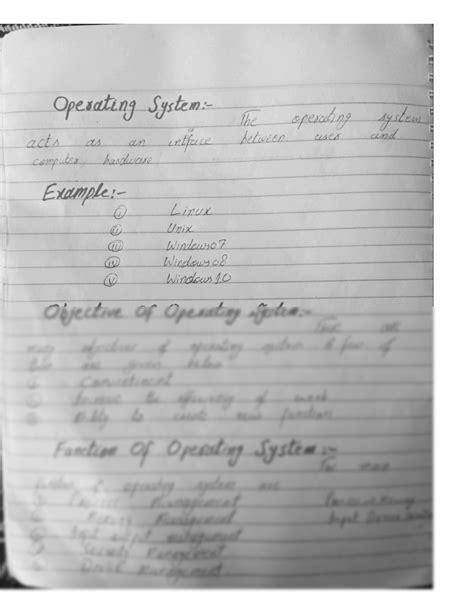 Operating System:-
The operating system
acts as an intface between user and
computer, hardware
Example:-
(i) Linux
(ii) Unix
(iii) Windows07
(iv) Windows08
(v) Windows10
Objective Of Operating System:-
objectives of operating system & few of
are given below
Increase the efficiency of
to create new function
Function Of Operating System:-
The main
of operating system are
Management
Memory Management
Input output management
Security Management
Device Management